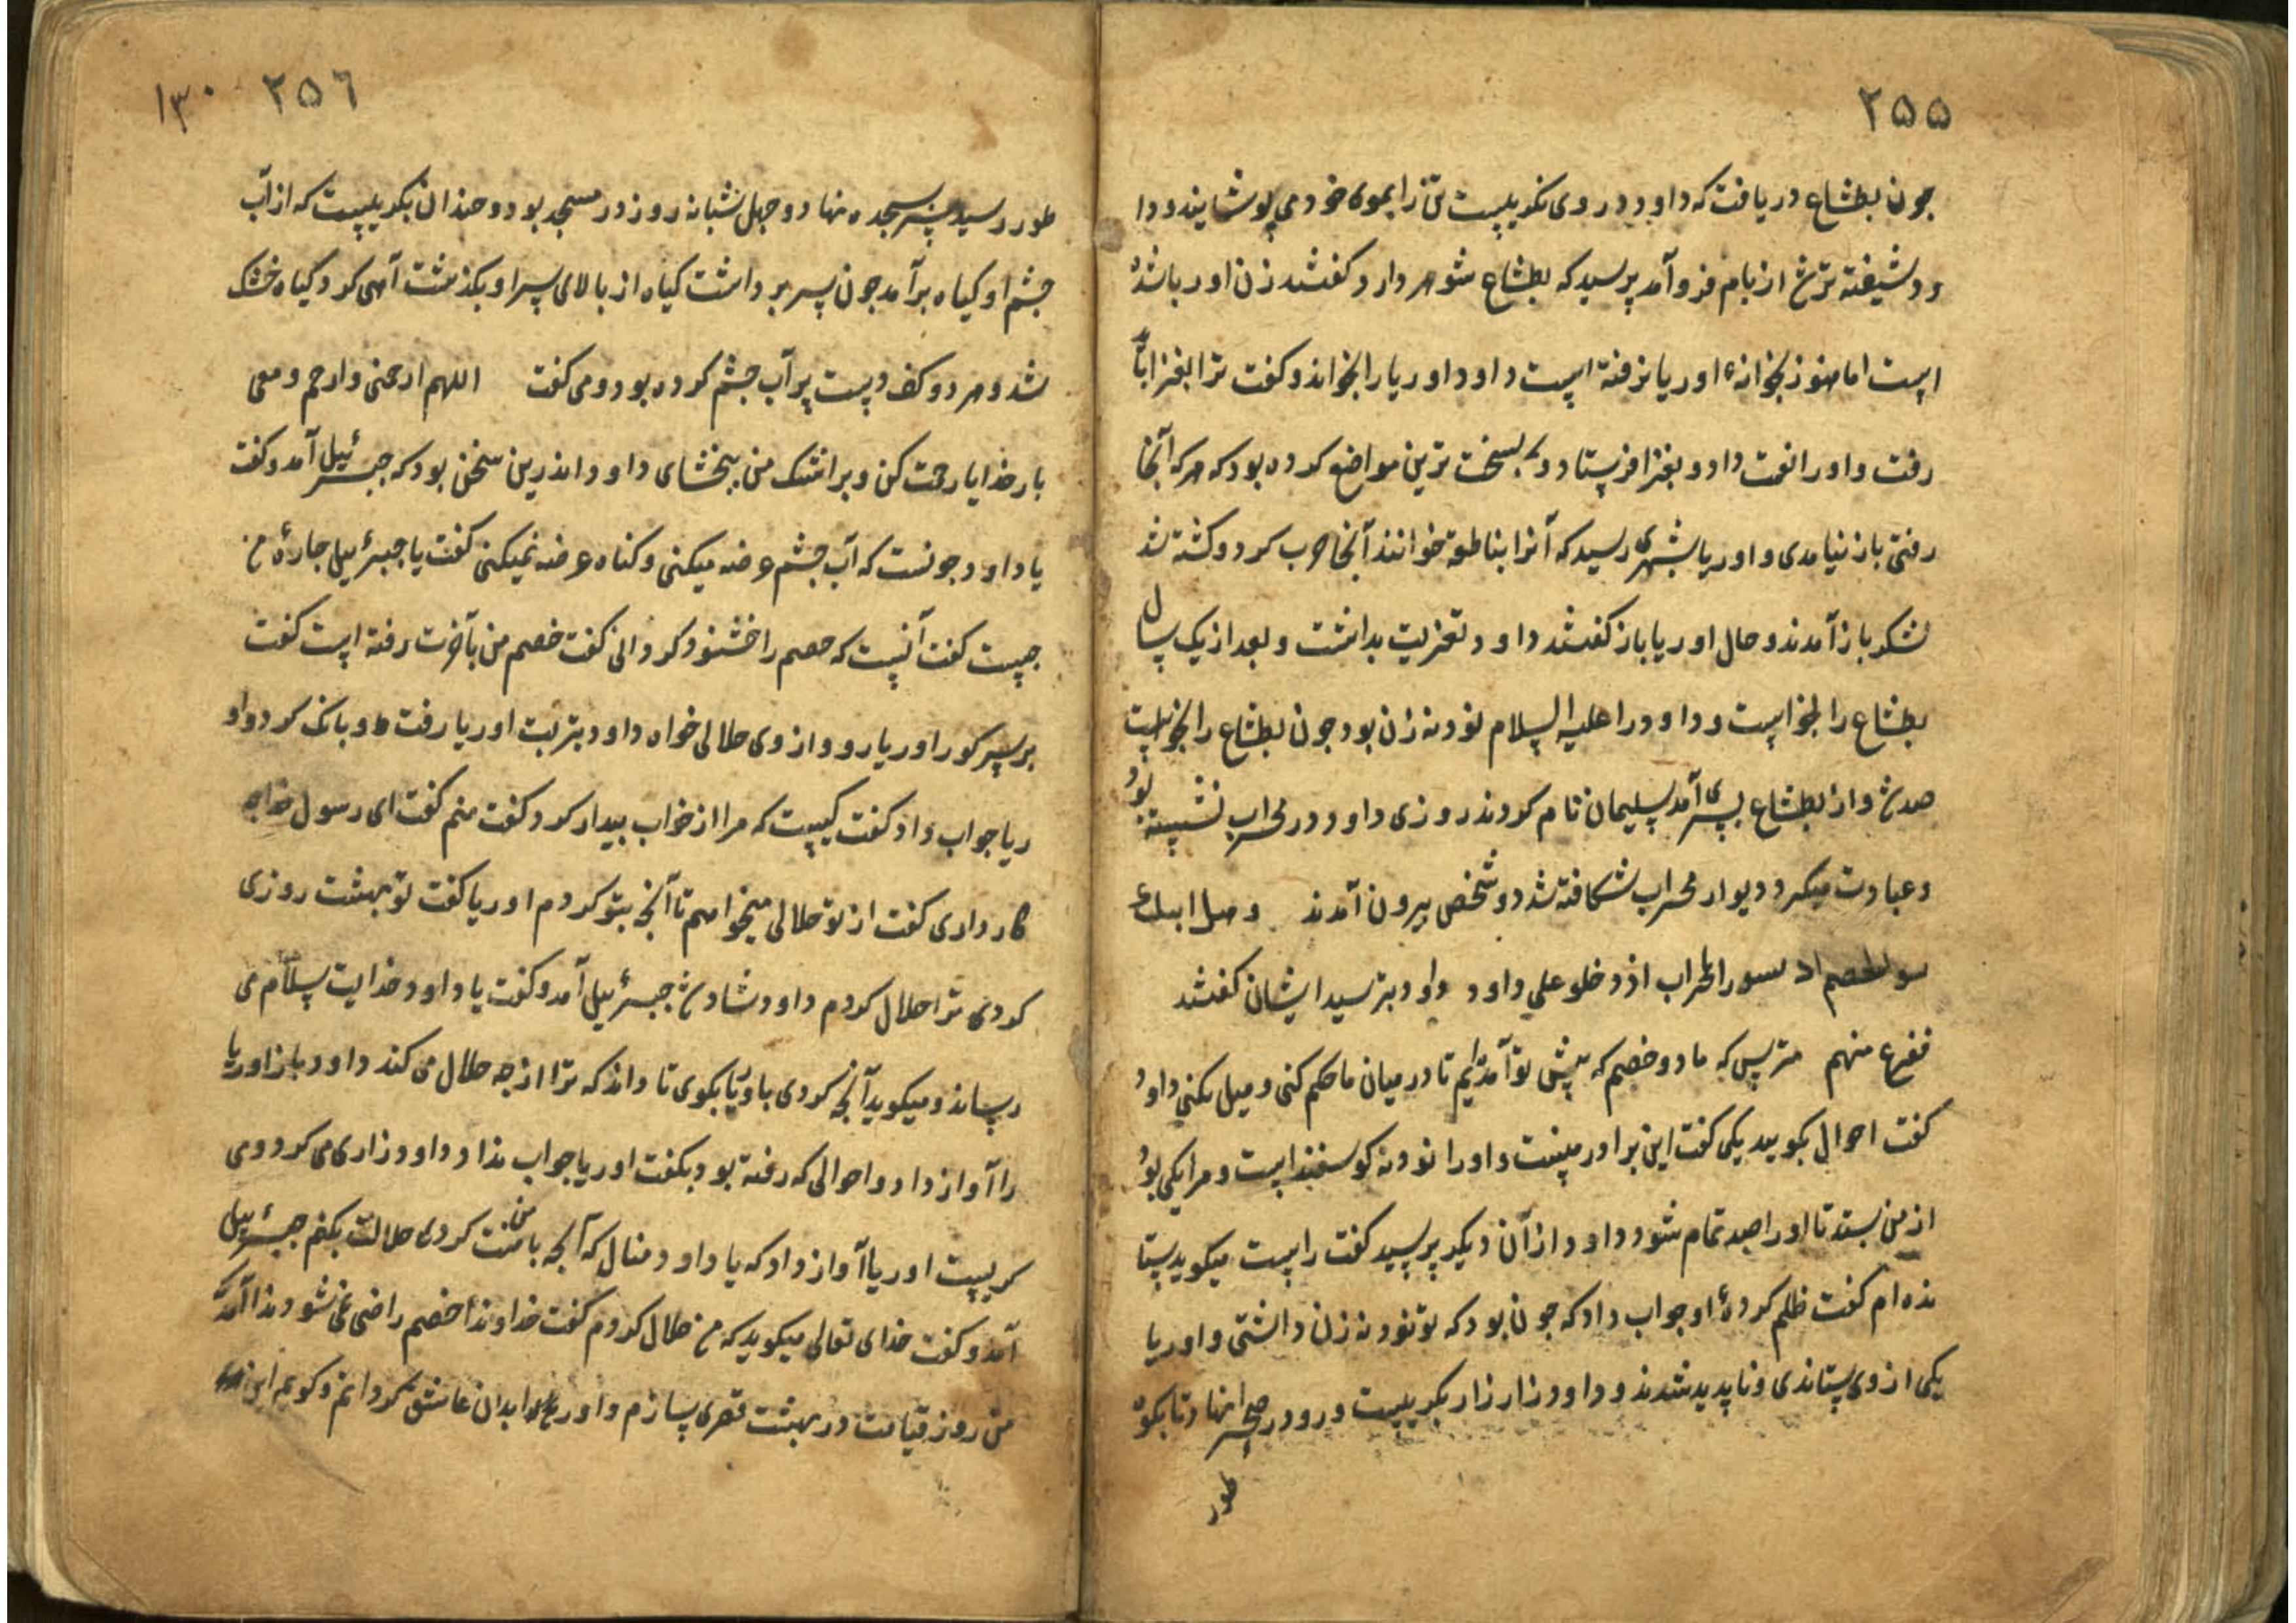 ۲۵۵
جون بطشاع دریافت که داود در وی نکریست تن را بموی خود می پوشانید و دا
ود شیفته تر شد از بام فرو آمد پرسید که بطشاع شوهر دارد کفتند زن اوریا شده
است اما هنوز بخوانهٔ اوریا نرفته است داود اوریا را بخواند و کفت ترا بغزا باید
رفت و او را نعمت داد و بغزا فرستاد و بسخت ترین مواضع کرده بود که هر که آنجا
رفتی باز نیامدی و اوریا بشهری رسید که آنرا بناطوة خوانند آنجا حرب کرد و کشته شد
لشکر باز آمدند و حال اوریا باز کفتند داود تعزیت بداشت و بعد از یک سال
بطشاع را بخواست و داود را علیه السلام نود نه زن بود جون بطشاع را بخواست
صد شد و از بطشاع پسری آمد سلیمان نام کردند روزی داود در محراب نشسته بود
و عبادت میکرد دیوار محراب شکافته شد دو شخص بیرون آمدند وهل اتیک
نبوا الخصم اذ تسوروا المحراب اذ دخلو علی داود داود بترسید ایشان کفتند
ففزع منهم مترس که ما دو خصم که پیش تو آمدایم تا در میان ما حکم کنی و میل نکنی داود
کفت احوال بکویید یکی کفت این برادر منست و او را نود نه کوسفند است و مرا یکی بود
از من بستد تا او را صد تمام شود داود از آن دیکر پرسید کفت راست میکوید ستا
نده ام کفت ظلم کردهٔ او جواب داد که جون بود که تو نود نه زن داشتی و اوریا
یکی از وی ستاندی و ناپدید شدند و داود زار زار بکریست و رو در صحرا نهاد تا بکوه
طور
۲۵۶ ۱۳۰
طور رسید سر بسجده نهاد و جهل شبانه روز در مسجد بود و جندان بکریست که از آب
جشم او کیاه برآمد جون سر برداشت کیاه از بالای سر او بکذشت آهی کرد کیاه خشک
شد و هر دو کف دست پر آب جشم کرده بود و می کفت اللهم ارحمنی وارحم دمعی
بار خدایا رحمت کن و بر اشک من ببخشای داود اندرین سخن بود که جبرئیل آمد و کفت
یا داود جونست که آب جشم عرضه میکنی و کناه عرضه نمیکنی کفت یا جبرئیل جارهٔ من
جیست کفت آنست که خصم را خشنود کردانی کفت خصم من بآخرت رفته است کفت
بر سر کور اوریا رو و از وی حلالی خواه داود بتربت اوریا رفت و بانک کرد و او
ریا جواب داد کفت کیست که مرا از خواب بیدار کرد کفت منم کفت ای رسول خدا جه
کار داری کفت از تو حلالی میخواهم تا آنجه بتو کردم اوریا کفت تو بهشت روزی
کردی ترا حلال کردم داود شاد شد جبرئیل آمد و کفت یا داود خدایت سلام می
رساند و میکوید آنجه کردی با اوریا بکوی تا داند که ترا از جه حلال می کند داود باز اوریا
را آواز داد و احوالی که رفته بود بکفت اوریا جواب نداد داود زاری می کرد و می
کریست اوریا آواز داد که یا داود منال که آنجه با منت کردی حلالت بکنم جبرئیل
آمد و کفت خدای تعالی میکوید که من حلال کردم کفت خداوندا خصم راضی نمی شود ندا آمد که
من روز قیامت در بهشت قصری سازم و اوریا را بدان عاشق کردانم و کویم این